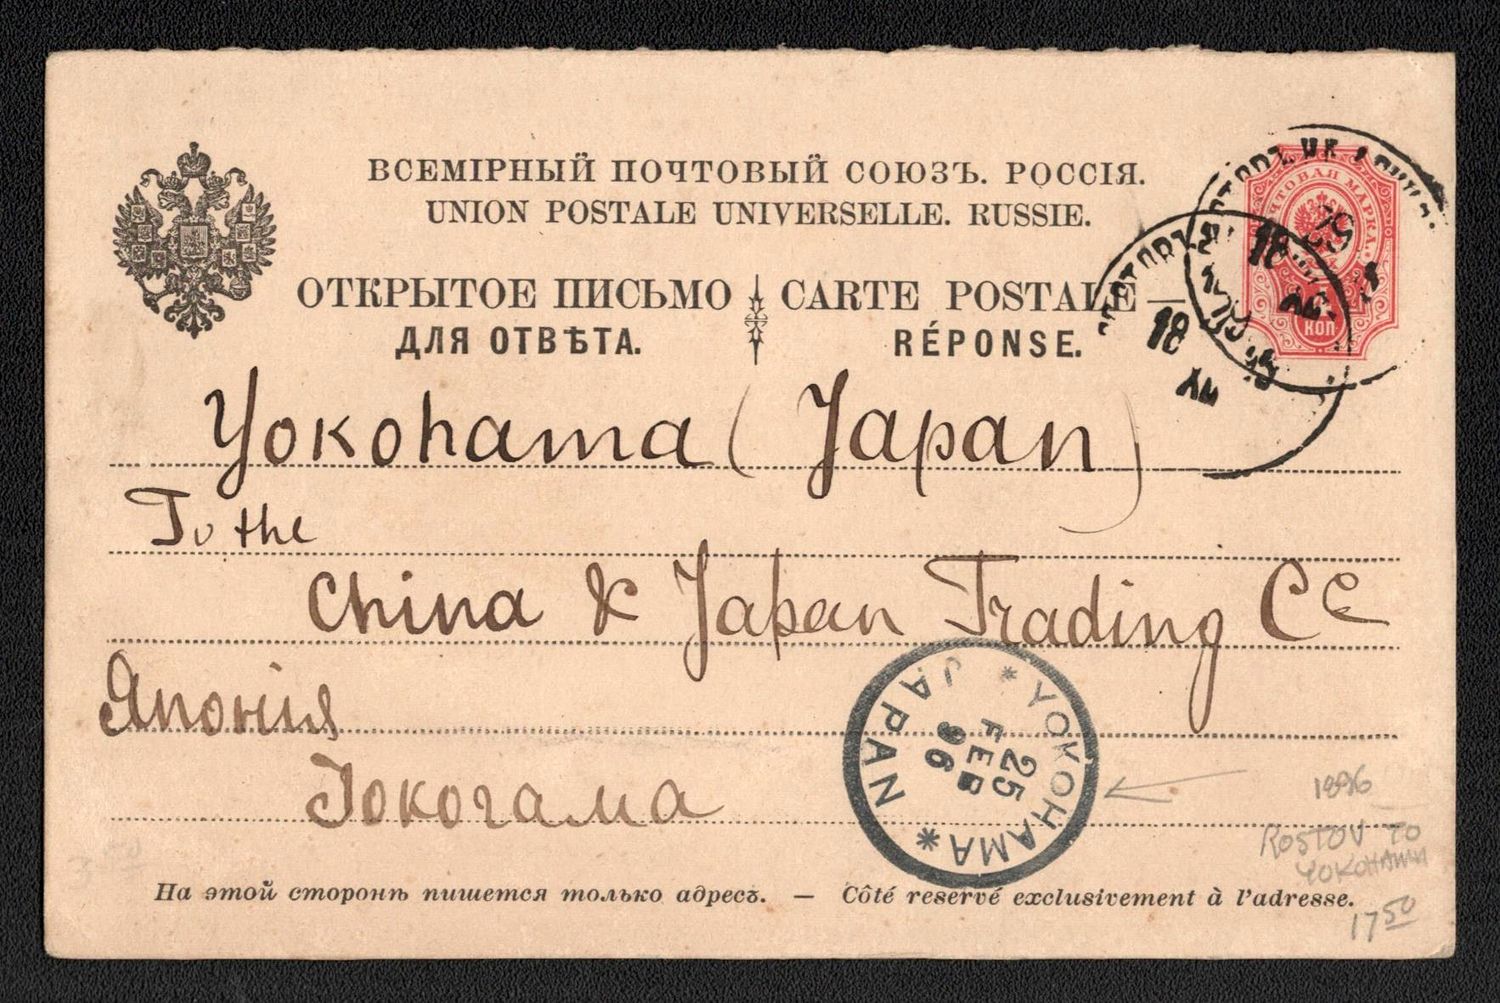 ВСЕМІРНЫЙ ПОЧТОВЫЙ СОЮЗЪ. РОССІЯ.
UNION POSTALE UNIVERSELLE. RUSSIE.
ОТКРЫТОЕ ПИСЬМО CARTE POSTALE
ДЛЯ ОТВѢТА. RÉPONSE.
МАРКА.
КОП
18
18
Yokohama (Japan)
To the
China & Japan Trading Cº
Японія
Іокогама
YOKOHAMA * JAPAN *
25
FEB
96
1896
ROSTOV TO
YOKOHAMA
17 50
На этой сторонѣ пишется только адресъ. — Côté reservé exclusivement à l'adresse.